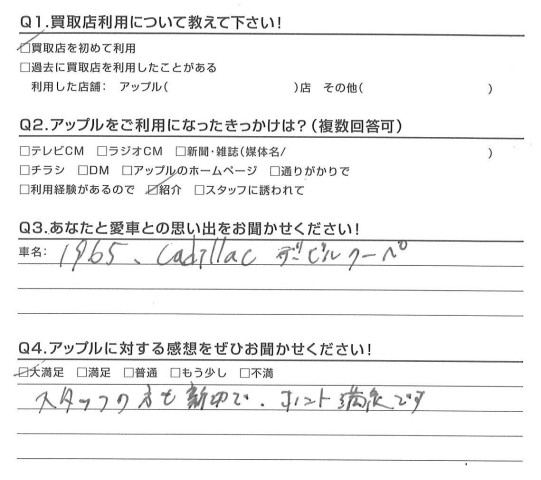 Q1.買取店利用について教えて下さい!
□買取店を初めて利用
□過去に買取店を利用したことがある
利用した店舗: アップル( )店 その他( )
Q2.アップルをご利用になったきっかけは?(複数回答可)
□テレビCM □ラジオCM □新聞・雑誌(媒体名/ )
□チラシ □DM □アップルのホームページ □通りがかりで
□利用経験があるので □紹介 □スタッフに誘われて
Q3.あなたと愛車との思い出をお聞かせください!
車名: 1965、Cadillac デービルクーペ
Q4.アップルに対する感想をぜひお聞かせください!
□大満足 □満足 □普通 □もう少し □不満
スタッフの方も親切で、ホント満足です